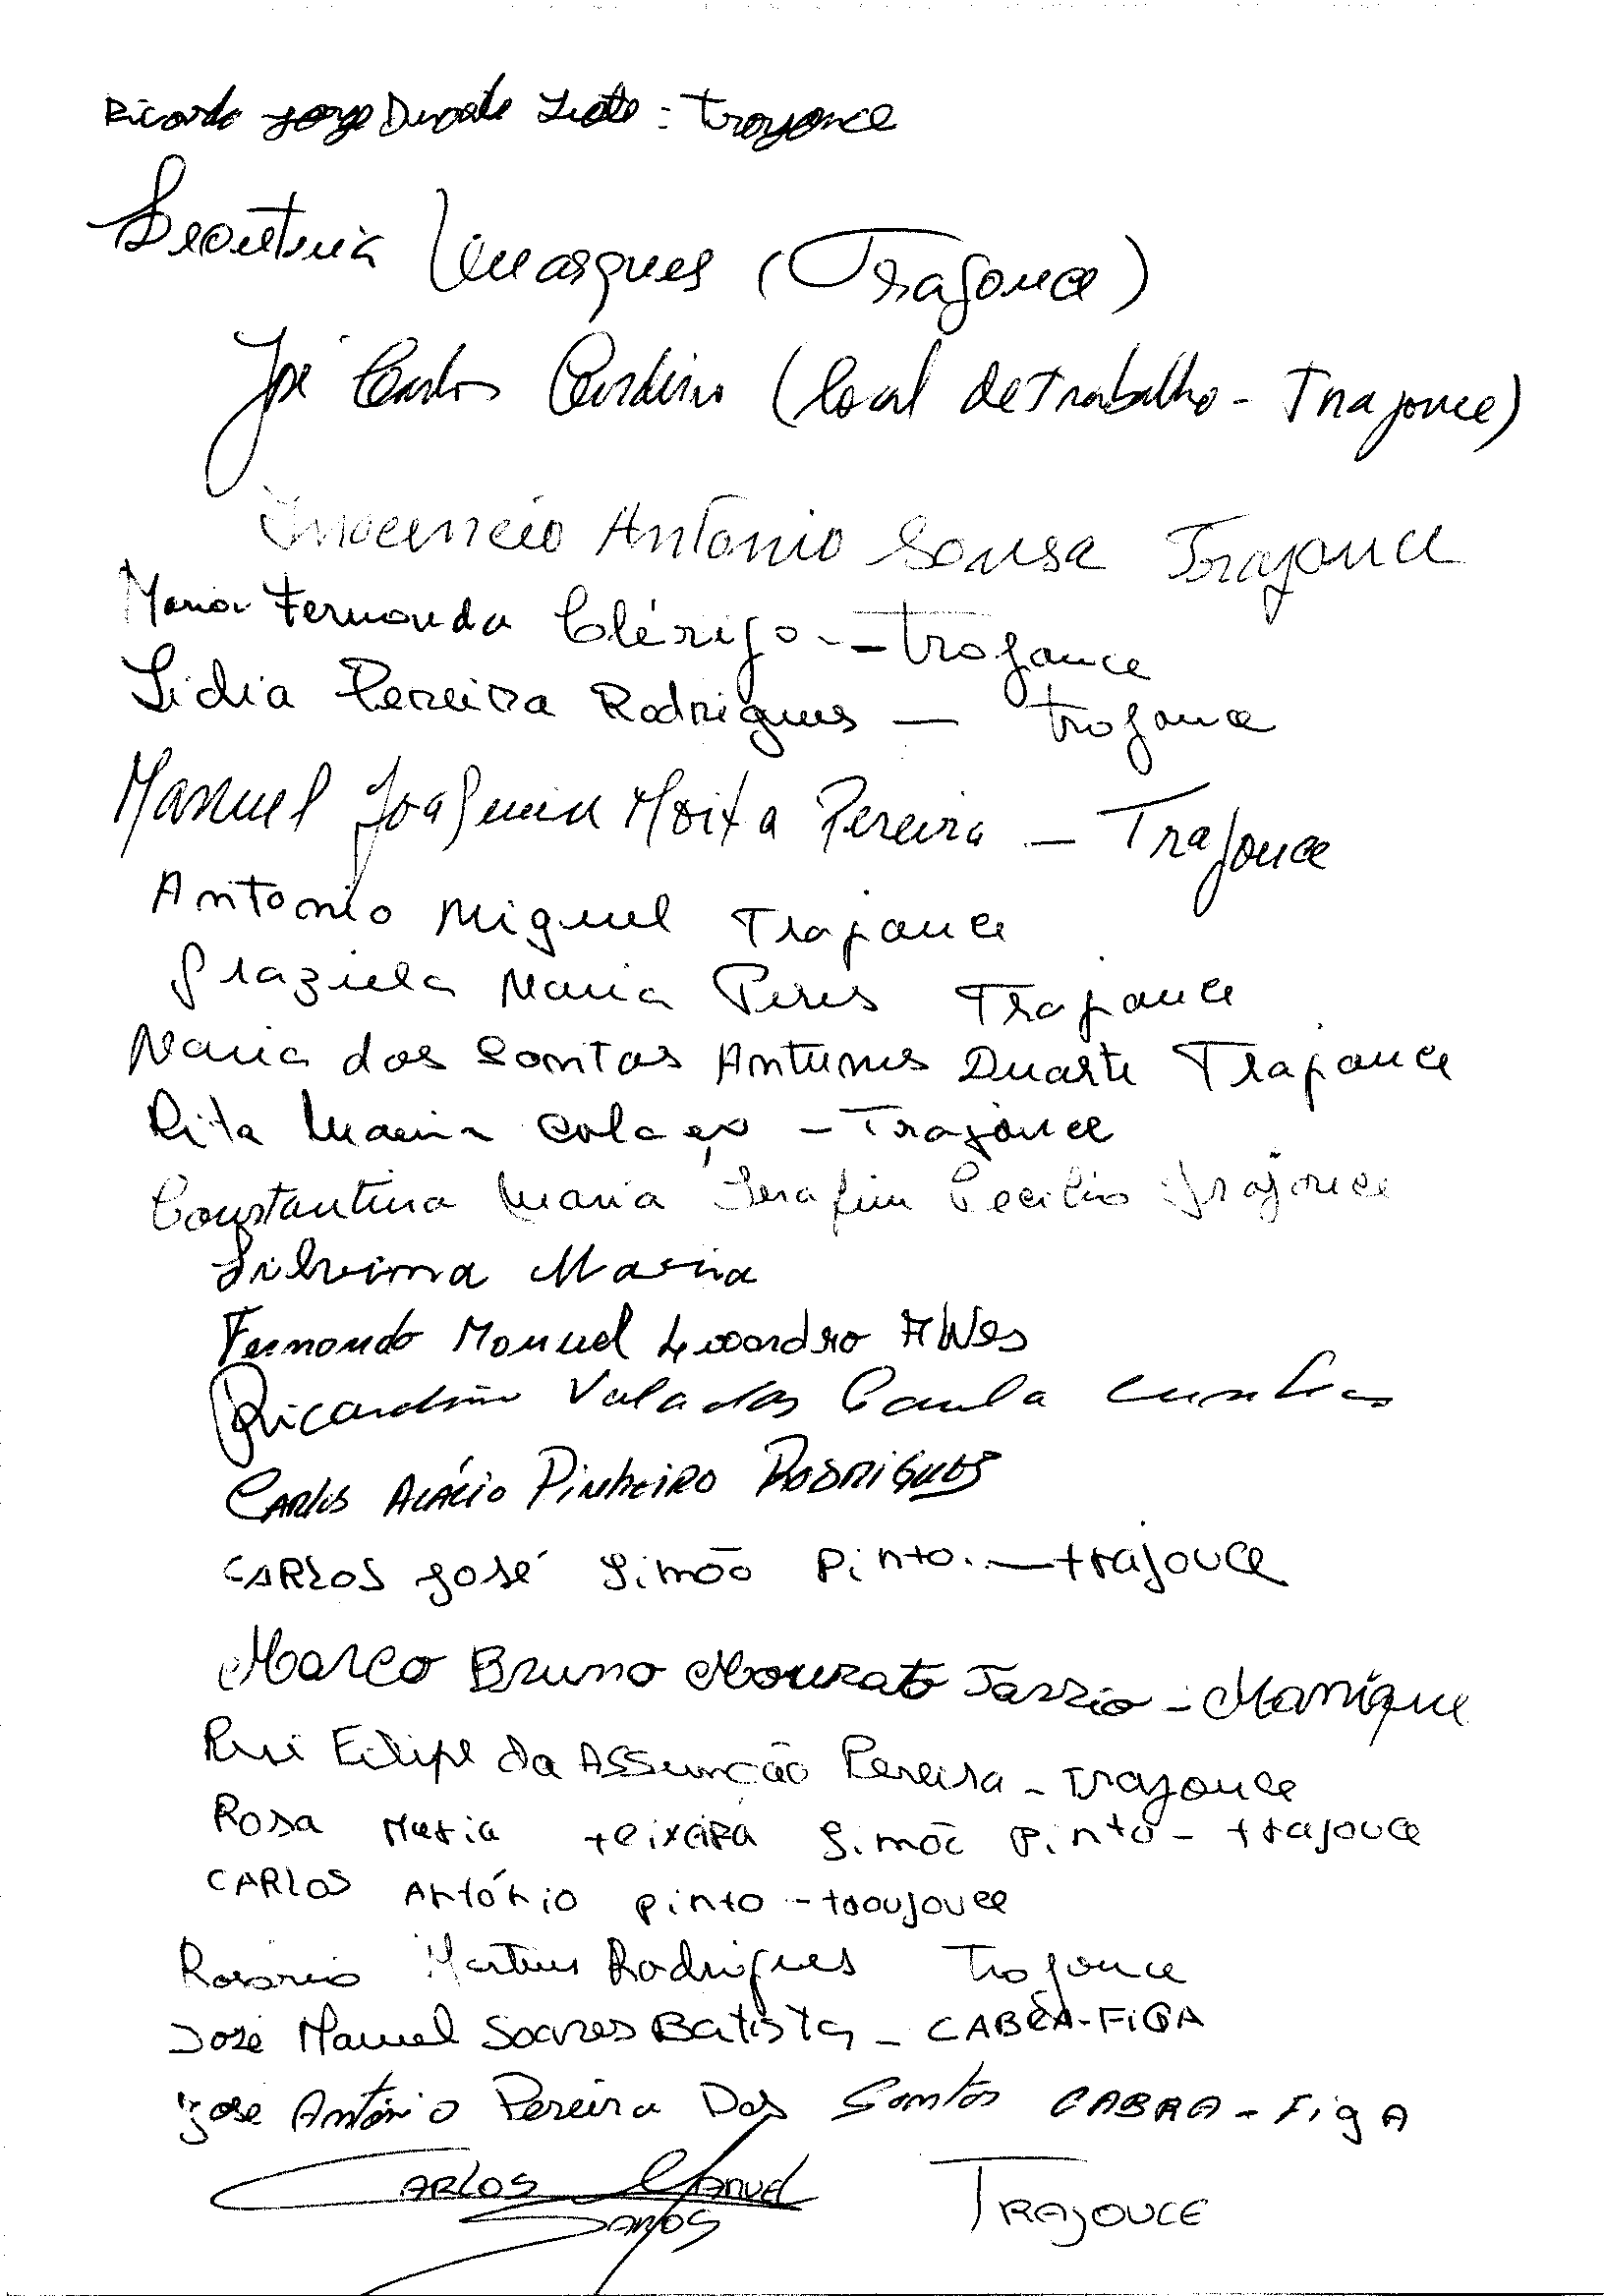 Ricardo Jorge Duarte : Trajouce
Marques (Trajouce)
José Carlos (local de Trabalho - Trajouce)
Inocencio Antonio Sousa Trajouce
Maria Fernanda Clérigo - Trajouce
Lidia Pereira Rodrigues - Trajouce
Manuel Joaquim Moita Pereira - Trajouce
Antonio Miguel Trajouce
Graziela Maria Peres Trajouce
Maria dos Santos Antunes Duarte Trajouce
Rita Maria Colaço - Trajouce
Constantina Maria Serafim Cecilio Trajouce
Silvina Maria
Fernando Manuel Alves
Valadas Paula Cunha
Carlos Acácio Pinheiro Rodrigues
CARLOS José Simão Pinto. - trajouce
Marco Bruno Mourato - Manique
Rui Filipe da Assunção Pereira - Trajouce
Rosa Maria teixeira Simão Pinto - trajouce
CARLOS António pinto - traujouce
Rosário Martins Rodrigues Trajouce
José Manuel Soares Batista - CABRA-FIGA
José António Pereira Dos Santos CABRA-FigA
CARLOS MANUEL TRAJOUCE